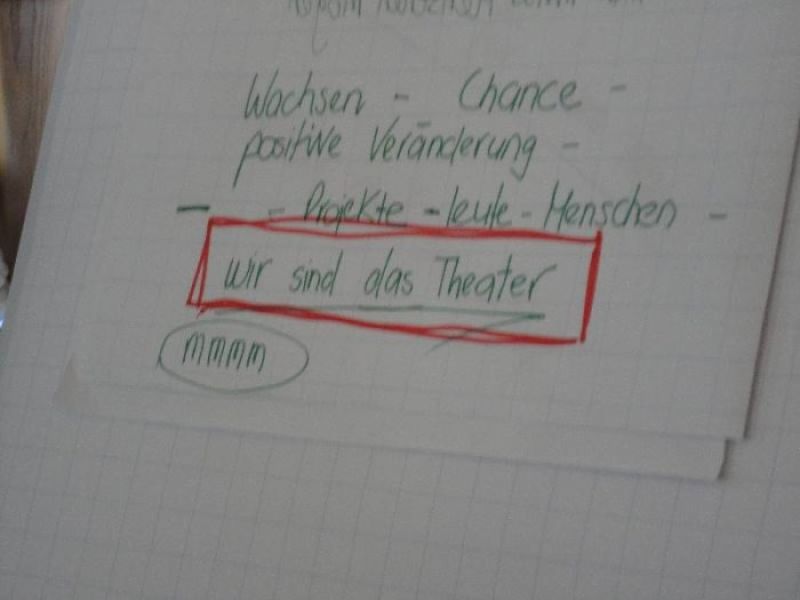 Wachsen - Chance -
positive Veränderung -
- - Projekte - leute - Menschen -
wir sind das Theater
mmmm